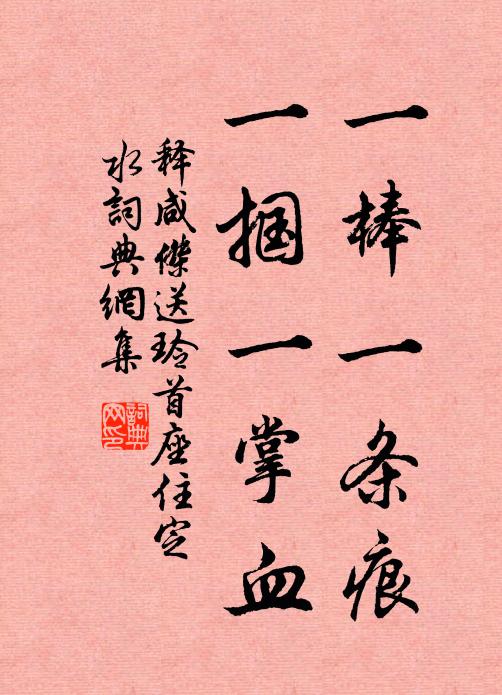 一棒一条痕
一掴一掌血
释咸傑送玲首座住定
水詞典網集
詞典网印